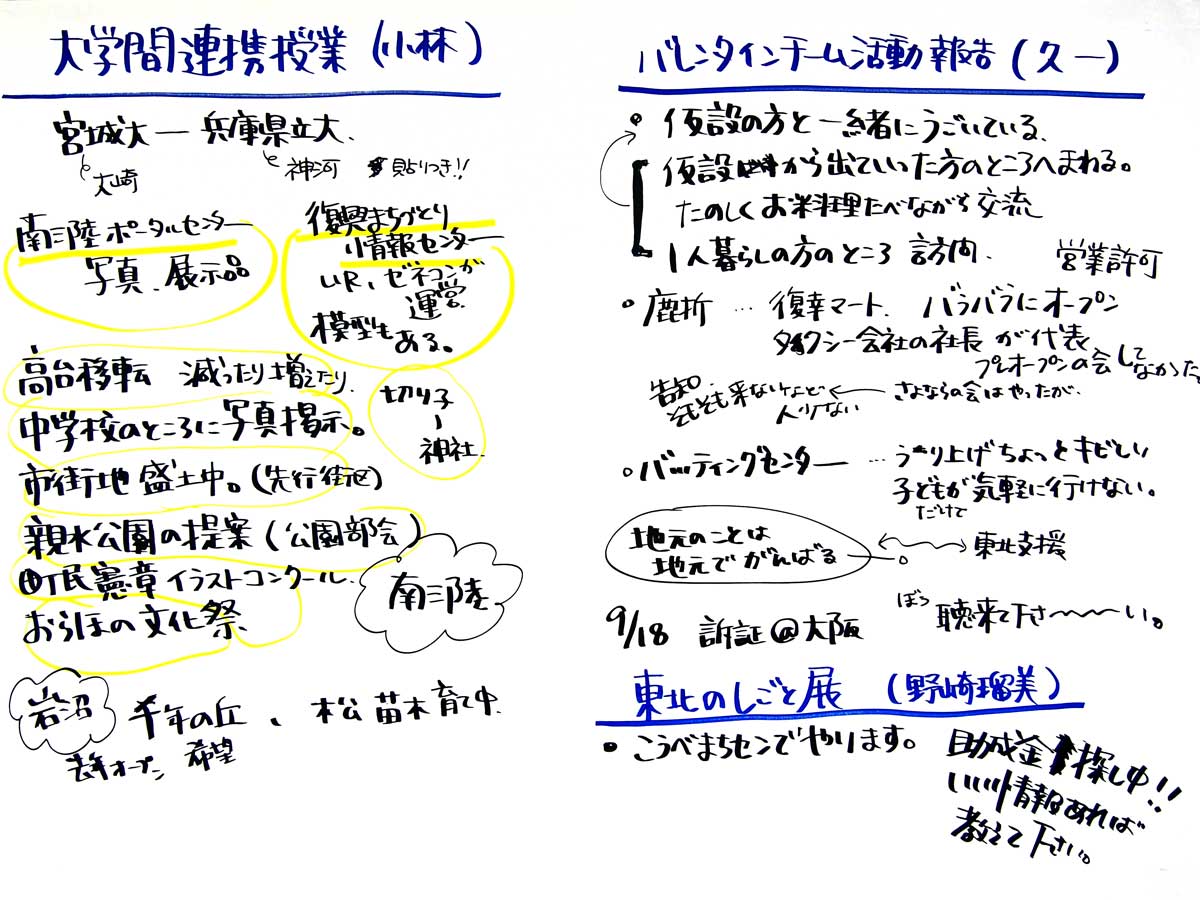 大学間連携授業(小林)
宮城大ー兵庫県立大
大崎
神河 貼りつき!!
南三陸ポータルセンター
写真、展示品
復興まちづくり
情報センター
UR、ゼネコンが
運営
模型もある。
高台移転 減ったり増えたり
中学校のところに写真掲示。
切り子
ー
神社
市街地盛土中。(先行街区)
親水公園の提案(公園部会)
町民憲章イラストコンクール
おらほの文化祭
南三陸
岩沼
千年の丘、松苗木育て中
去年オープン 希望
バレンタインチーム活動報告(久一)
・仮設の方と一緒にうごいている、
仮設から出ていった方のところへまわる。
たのしくお料理たべながら交流
1人暮らしの方のところ 訪問、
営業許可
・鹿折…復幸マート、バラバラにオープン
タクシー会社の社長が代表
プレオープンの会してなかった
さよならの会はやったが、
告知
そもそも来ないなど
人少ない
・バッティングセンター…売り上げちょっとキビしい
子どもが気軽に行けない。
だけで
地元のことは
地元でがんばる
東北支援
9/18 訴証@大阪
ぼう
聴来て下さ〜〜い。
東北のしごと展 (野崎瑠美)
・こうべまちセンでやります。
助成金探し中!!
いい情報あれば
教えて下さい。